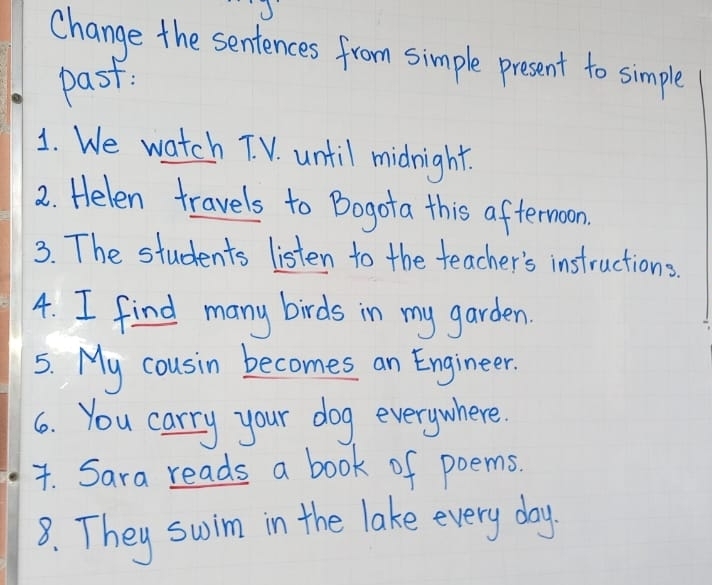 Change the sentences from simple present to simple
past:
1. We watch T.V. until midnight.
2. Helen travels to Bogota this afternoon.
3. The students listen to the teacher's instructions.
4. I find many birds in my garden.
5. My cousin becomes an Engineer.
6. You carry your dog everywhere.
7. Sara reads a book of poems.
8. They swim in the lake every day.